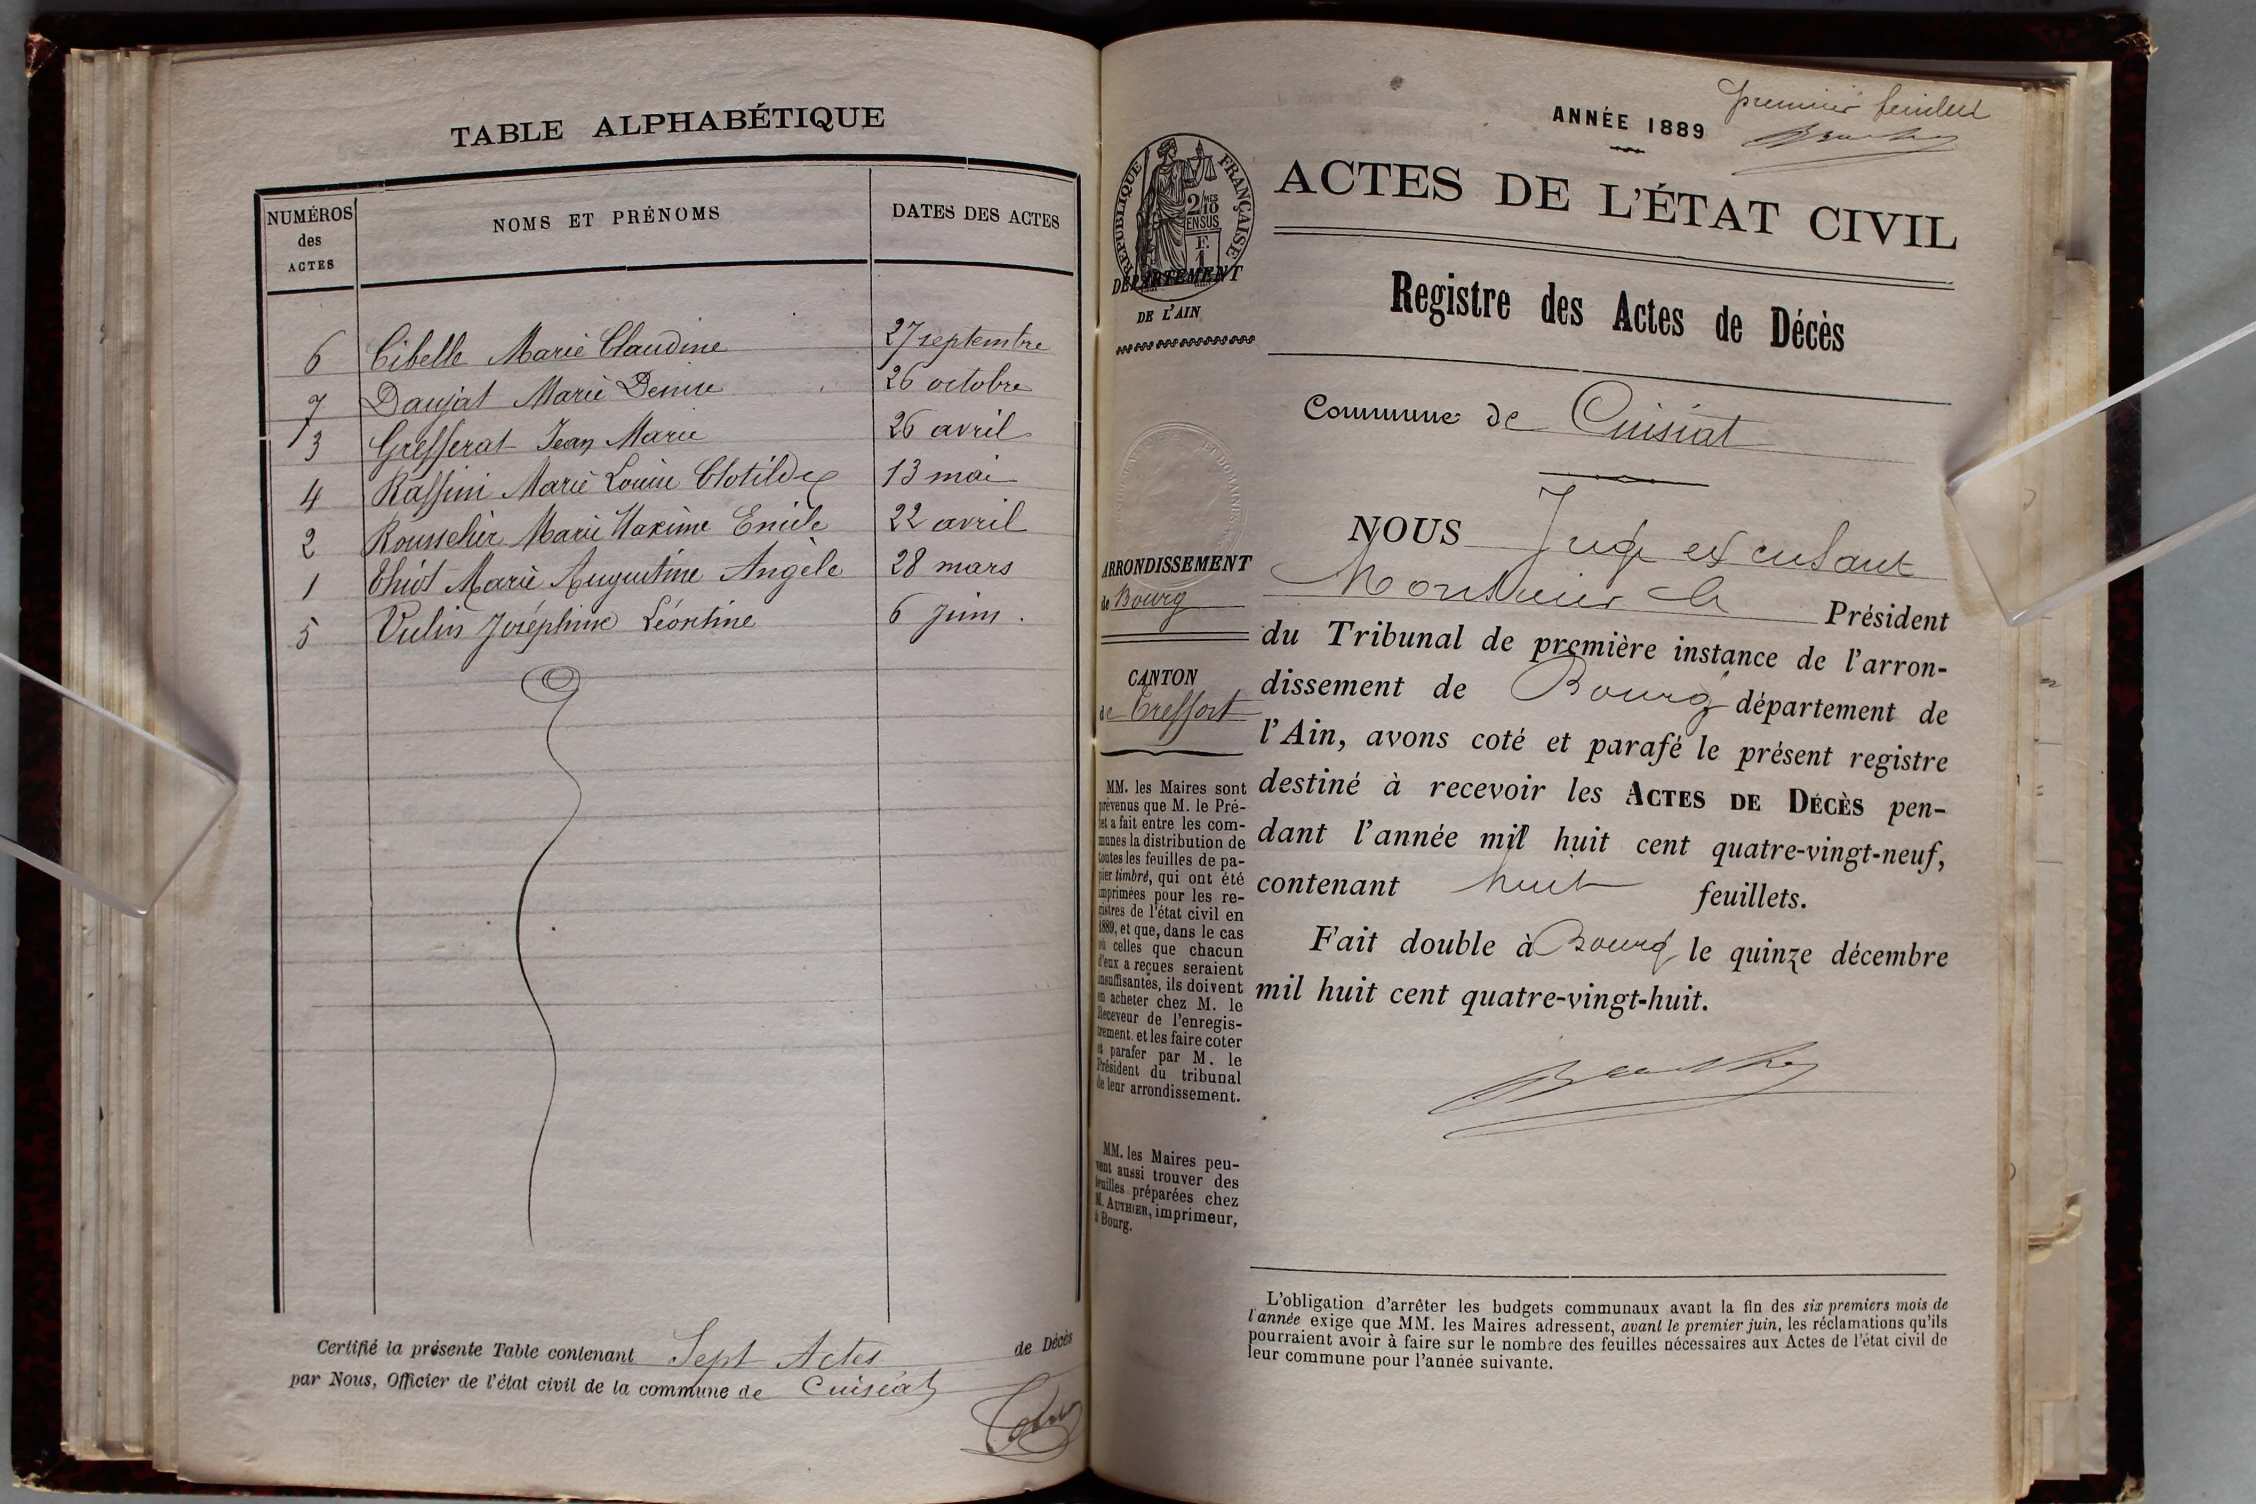 TABLE ALPHABÉTIQUE
NUMÉROS des ACTES
NOMS ET PRÉNOMS
DATES DES ACTES
6 Cibelle Marie Claudine 27 septembre
7 Daujat Marie Denise 26 octobre
3 Grefferat Jean Marie 26 avril
4 Raffini Marie Louise Clotilde 13 mai
2 Rousselier Marie Maxime Emile 22 avril
1 Thiot Marie Augustine Angèle 28 mars
5 Vulin Joséphine Léontine 6 juin.
Certifié la présente Table contenant Sept Actes de Décès
par Nous, Officier de l'état civil de la commune de Cuisiat
premier feuillet
ANNÉE 1889
RÉPUBLIQUE FRANÇAISE
2/10 MES
EN SUS
F.
1
ACTES DE L'ÉTAT CIVIL
DÉPARTEMENT
DE L'AIN
Registre des Actes de Décès
Commune de Cuisiat
ARRONDISSEMENT
de Bourg
CANTON
de Treffort
MM. les Maires sont
prévenus que M. le Pré-
fet a fait entre les com-
munes la distribution de
toutes les feuilles de pa-
pier timbré, qui ont été
imprimées pour les re-
gistres de l'état civil en
1889, et que, dans le cas
où celles que chacun
d'eux a reçues seraient
insuffisantes, ils doivent
en acheter chez M. le
Receveur de l'enregis-
trement et les faire coter
et parafer par M. le
Président du tribunal
de leur arrondissement.
MM. les Maires peu-
vent aussi trouver des
feuilles préparées chez
M. AUTHIER, imprimeur,
à Bourg.
NOUS Juge excusant
Monsieur le Président
du Tribunal de première instance de l'arron-
dissement de Bourg département de
l'Ain, avons coté et parafé le présent registre
destiné à recevoir les ACTES DE DÉCÈS pen-
dant l'année mil huit cent quatre-vingt-neuf,
contenant huit feuillets.
Fait double à Bourg le quinze décembre
mil huit cent quatre-vingt-huit.
L'obligation d'arrêter les budgets communaux avant la fin des six premiers mois de
l'année exige que MM. les Maires adressent, avant le premier juin, les réclamations qu'ils
pourraient avoir à faire sur le nombre des feuilles nécessaires aux Actes de l'état civil de
leur commune pour l'année suivante.